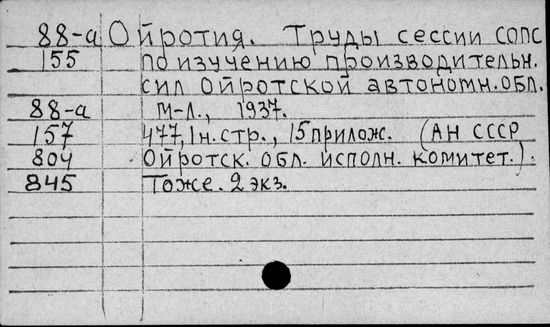 88-а Ойротия. Труды сессии СОПС
155 по изучению производительн.
сил Ойротской автономн. обл.
88-а М-Л., 1937.
157 477, 1 н. стр., 15 прилож. (АН СССР
804 Ойротск. обл. исполн. комитет.).
845 Тоже. 2 экз.